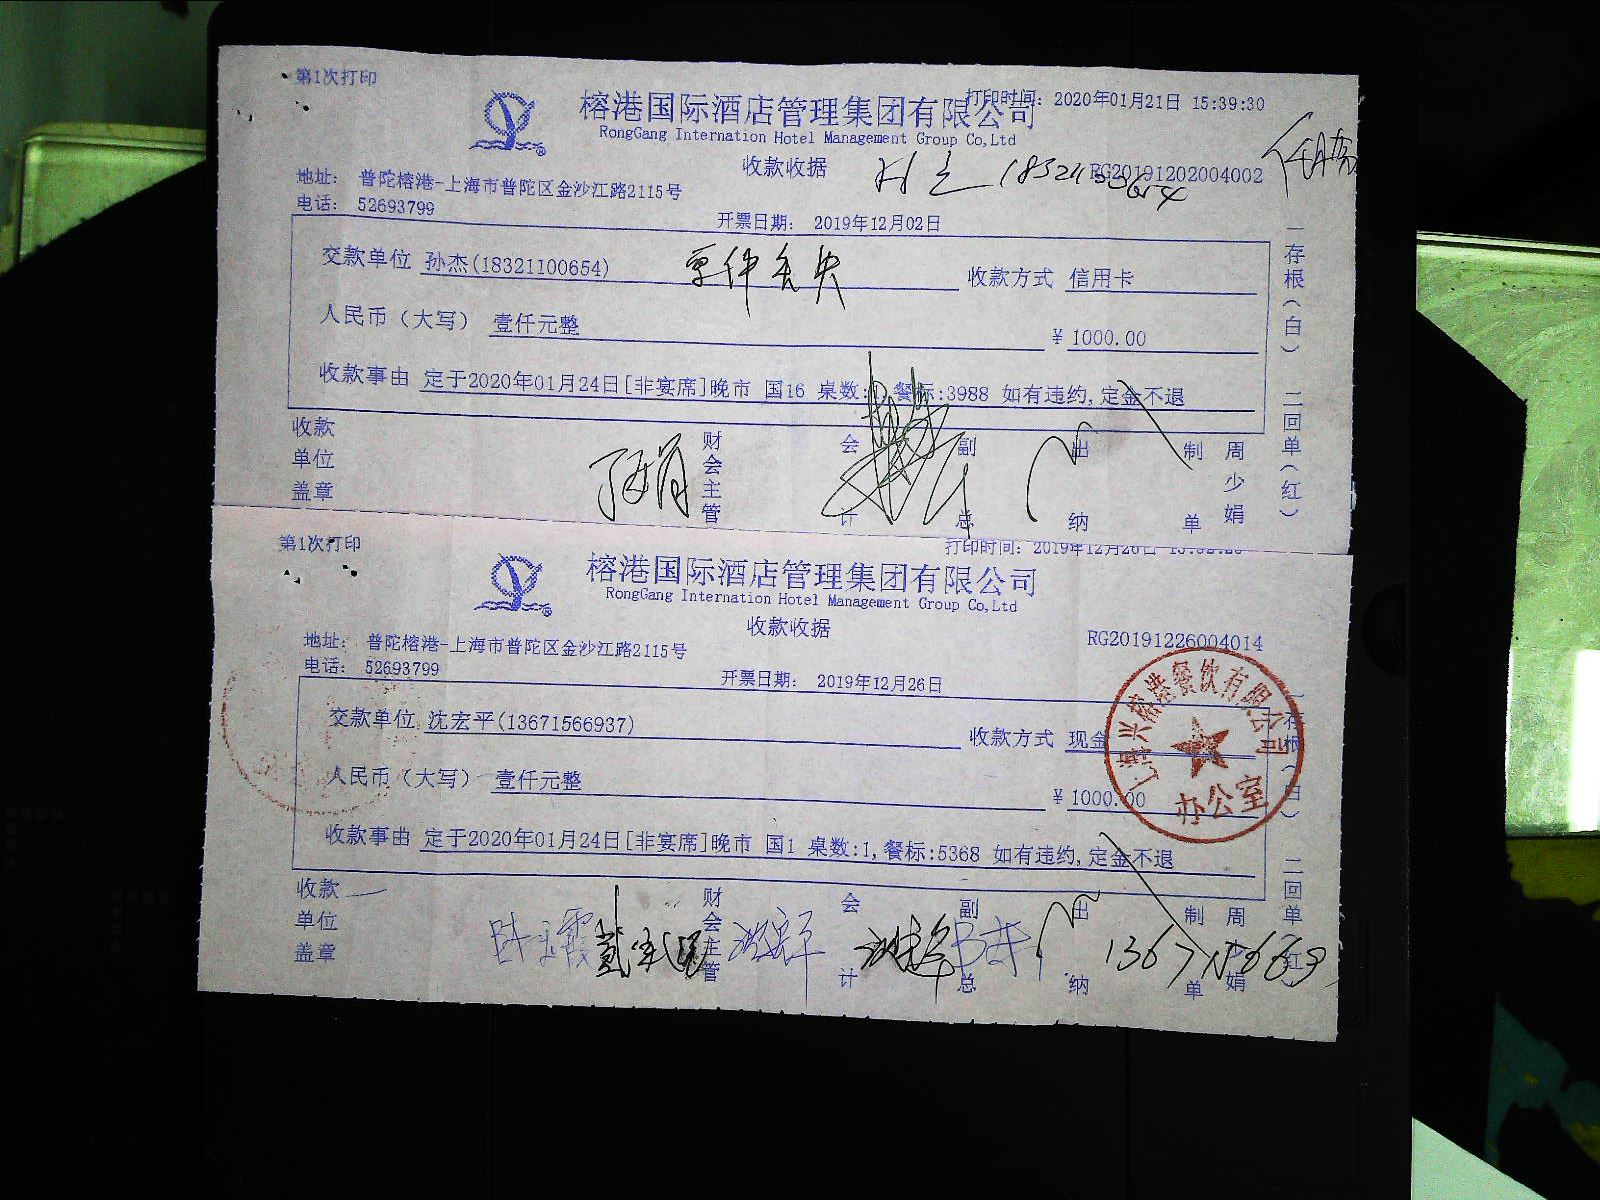 第1次打印
打印时间：2020年01月21日 15:39:30
榕港国际酒店管理集团有限公司
RongGang Internation Hotel Management Group Co,Ltd
收款收据
RG20191202004002
地址： 普陀榕港-上海市普陀区金沙江路2115号
电话： 52693799
开票日期： 2019年12月02日
交款单位 孙杰(18321100654) 收款方式 信用卡
人民币（大写） 壹仟元整 ¥ 1000.00
收款事由 定于2020年01月24日[非宴席]晚市 国16 桌数:1,餐标:3988 如有违约,定金不退
收款单位盖章 财会主管 会计 副总 出纳 制单 周少娟
一存根（白） 二回单（红）
第1次打印
打印时间：2019年12月26日
榕港国际酒店管理集团有限公司
RongGang Internation Hotel Management Group Co,Ltd
收款收据
RG20191226004014
地址： 普陀榕港-上海市普陀区金沙江路2115号
电话： 52693799
开票日期： 2019年12月26日
交款单位 沈宏平(13671566937) 收款方式 现金
人民币（大写） 壹仟元整 ¥ 1000.00
收款事由 定于2020年01月24日[非宴席]晚市 国1 桌数:1,餐标:5368 如有违约,定金不退
收款单位盖章 财会主管 会计 副总 出纳 制单 周少娟
二回单（红）
办公室